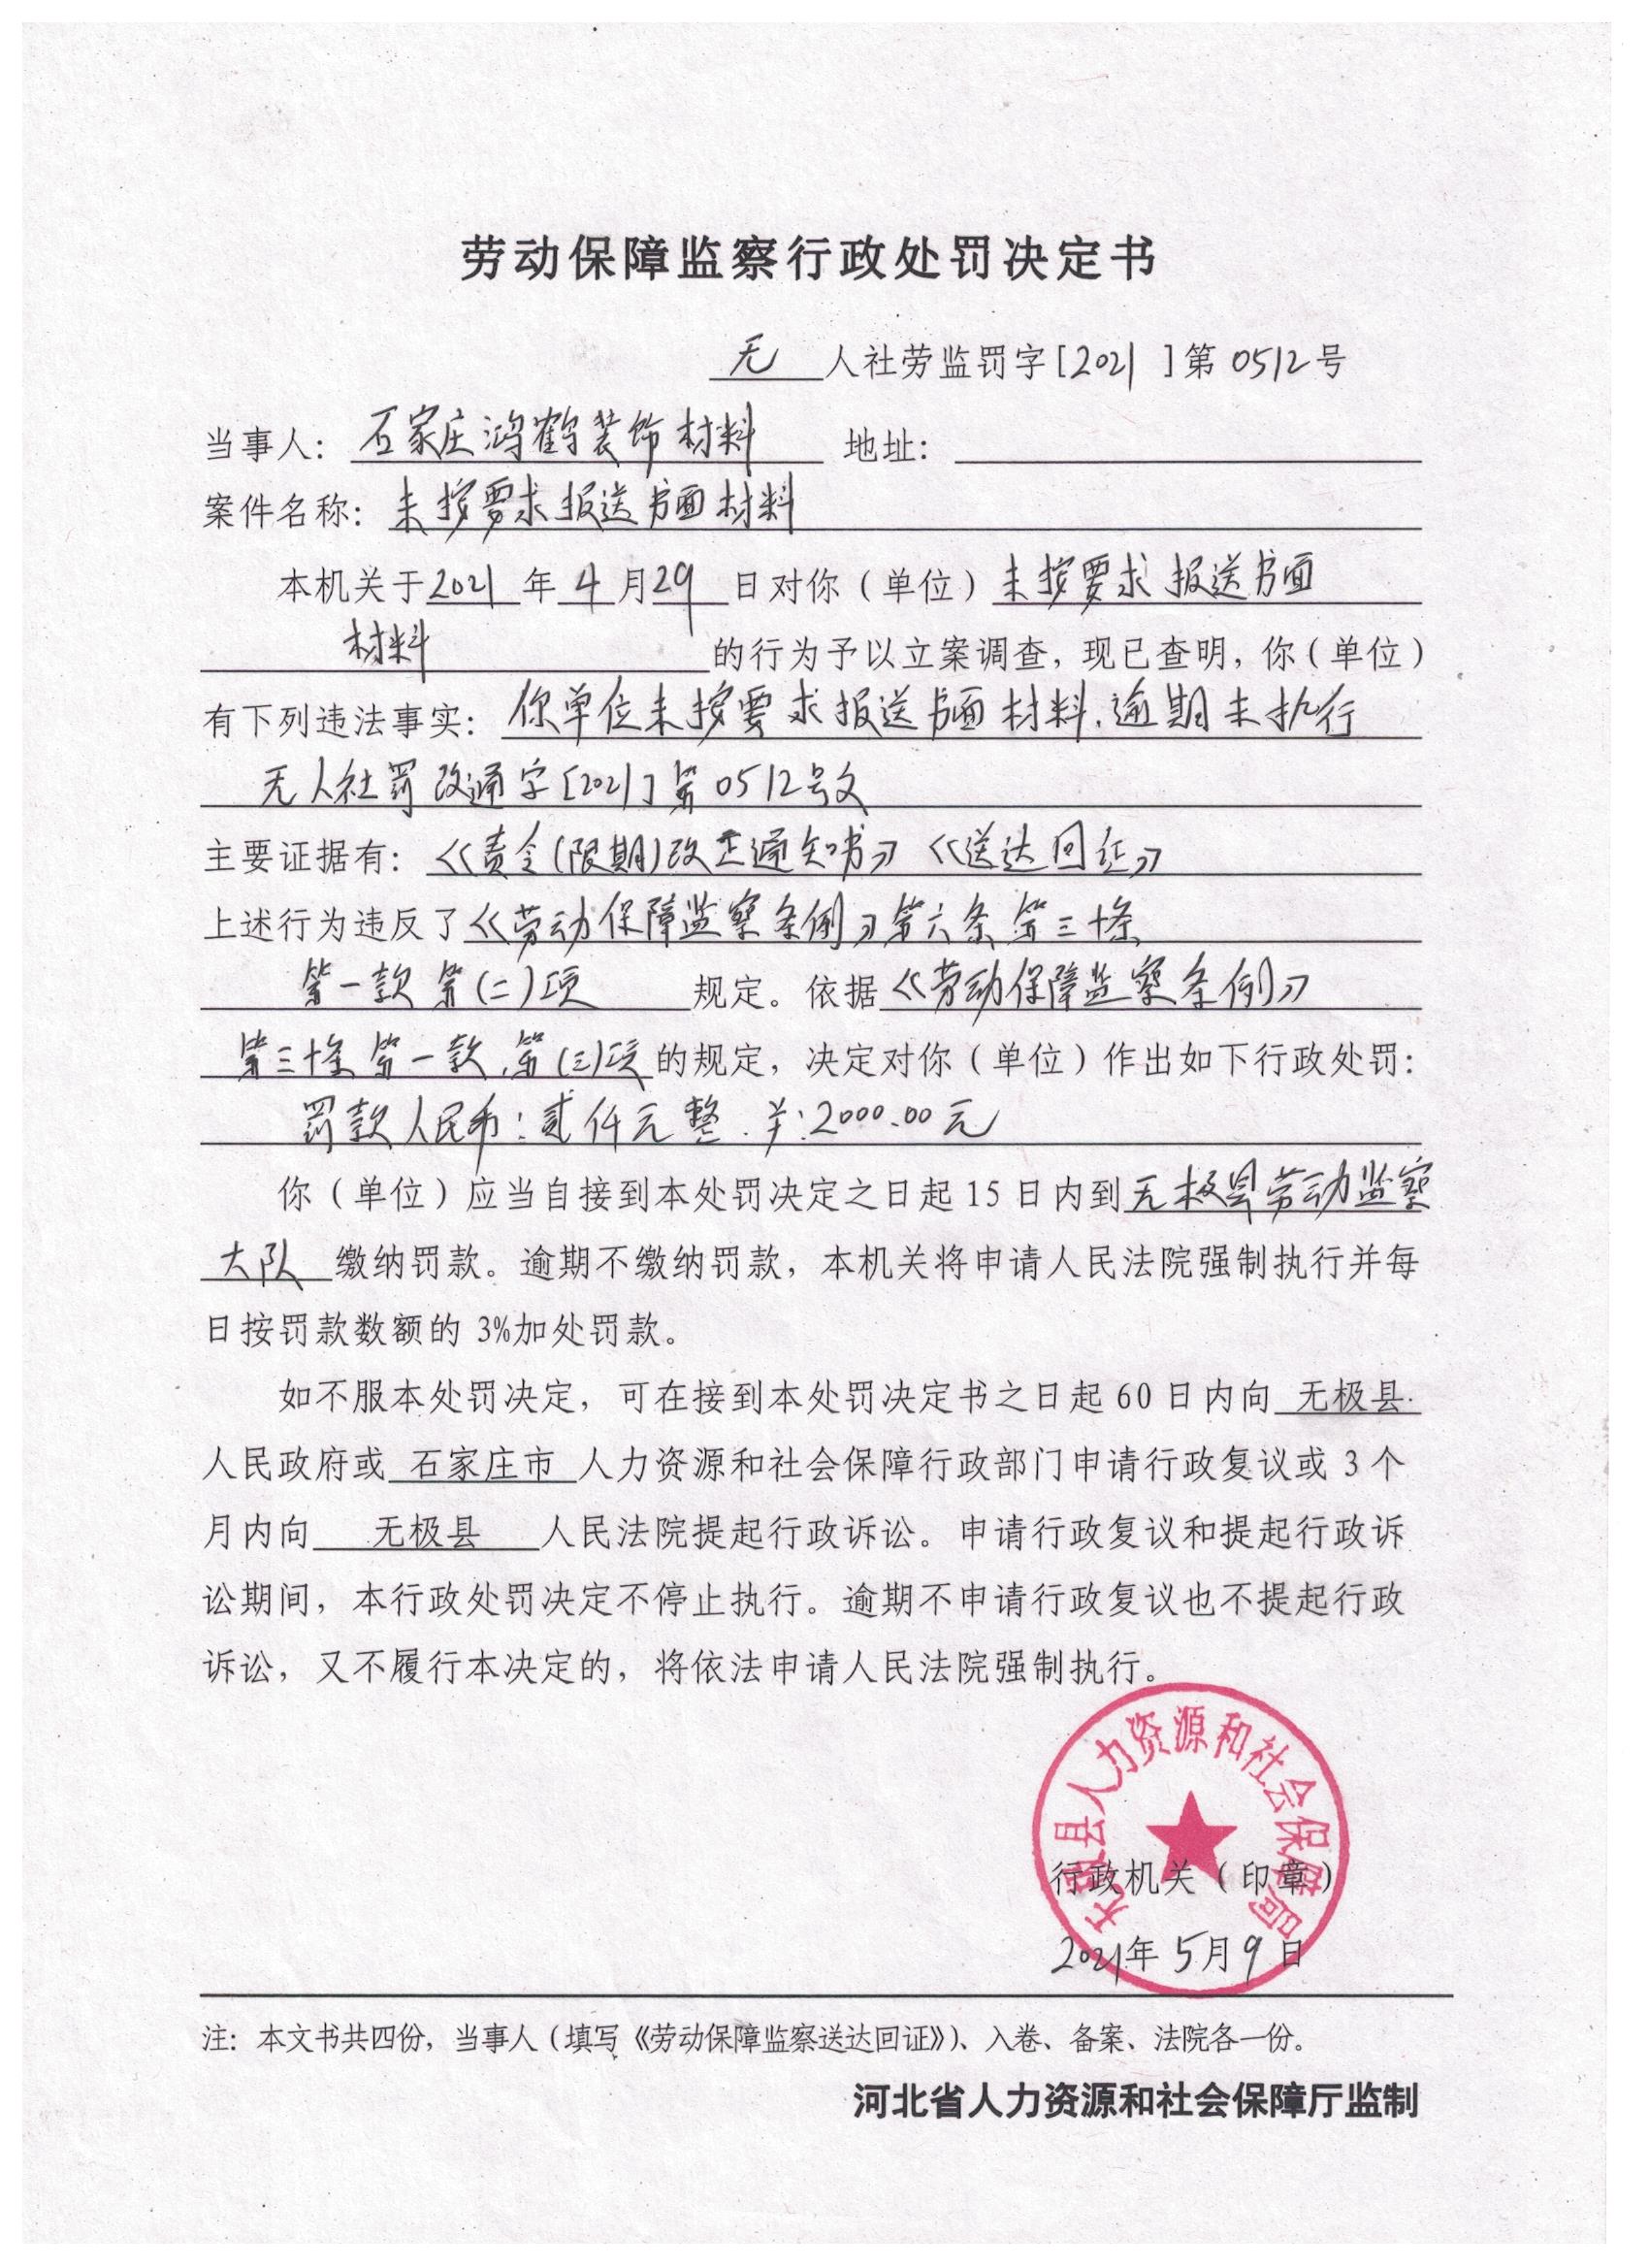 劳动保障监察行政处罚决定书
无 人社劳监罚字[2021 ]第 0512号
当事人：石家庄鸿鹤装饰材料 地址：
案件名称：未按要求报送书面材料
本机关于2021 年 4 月29 日对你（单位）未按要求报送书面
材料 的行为予以立案调查，现已查明，你（单位）
有下列违法事实：你单位未按要求报送书面材料.逾期未执行
无人社罚改通字[2021]第0512号文
主要证据有：《责令(限期)改正通知书》《送达回证》
上述行为违反了《劳动保障监察条例》第六条 第三十条
第一款 第(二)项 规定。依据《劳动保障监察条例》
第三十条 第一款.第(三)项的规定，决定对你（单位）作出如下行政处罚：
罚款人民币:贰仟元整.￥:2000.00元
你（单位）应当自接到本处罚决定之日起 15 日内到无极县劳动监察
大队 缴纳罚款。逾期不缴纳罚款，本机关将申请人民法院强制执行并每
日按罚款数额的 3%加处罚款。
如不服本处罚决定，可在接到本处罚决定书之日起 60 日内向 无极县
人民政府或 石家庄市 人力资源和社会保障行政部门申请行政复议或 3 个
月内向 无极县 人民法院提起行政诉讼。申请行政复议和提起行政诉
讼期间，本行政处罚决定不停止执行。逾期不申请行政复议也不提起行政
诉讼，又不履行本决定的，将依法申请人民法院强制执行。
无极县人力资源和社会保障局
行政机关（印章）
2021年 5月 9 日
注：本文书共四份，当事人（填写《劳动保障监察送达回证》）、入卷、备案、法院各一份。
河北省人力资源和社会保障厅监制